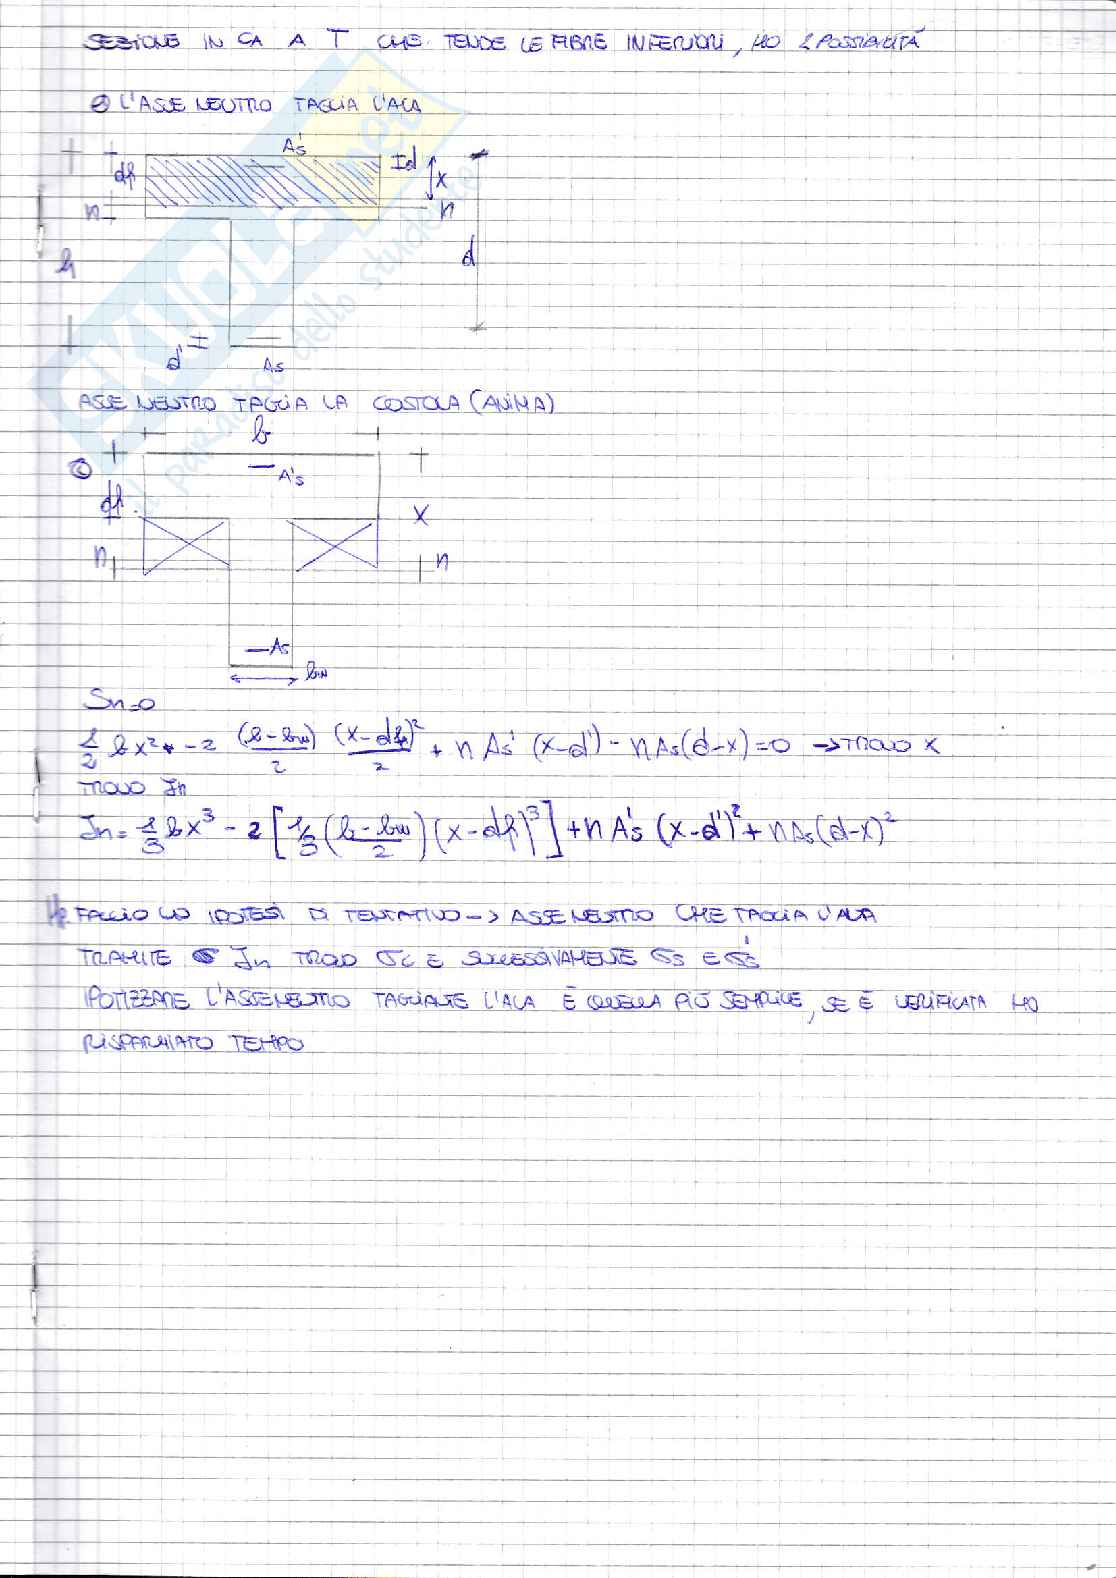 SEZIONE IN CA A T CHE TENDE LE FIBRE INFERIORI, HO 2 POSSIBILITÁ
L'ASSE NEUTRO TAGLIA L'ALA
As'
df
Id
x
n
n
h
d
d'
As
ASSE NEUTRO TAGLIA LA COSTOLA (ANIMA)
b
A's
df
x
n
n
As
bw
Sn=0
1/2 bx² - 2 (b-bw)/2 (x-df)²/2 + n As' (x-d') - n As(d-x)=0 → TROVO x
TROVO Jn
Jn = 1/3 bx³ - 2 [1/3 (b-bw/2) (x-df)³] + n A's (x-d')² + n As (d-x)²
Hp FACCIO UN IPOTESI DI TENTATIVO → ASSE NEUTRO CHE TAGLIA L'ALA
TRAMITE Jn TROVO σc E SUCCESSIVAMENTE σs E σs'
IPOTIZZARE L'ASSE NEUTRO TAGLIANTE L'ALA È QUELLA PIÙ SEMPLICE, SE È VERIFICATA HO
RISPARMIATO TEMPO
SKUOLA.net
il paradiso dello studente